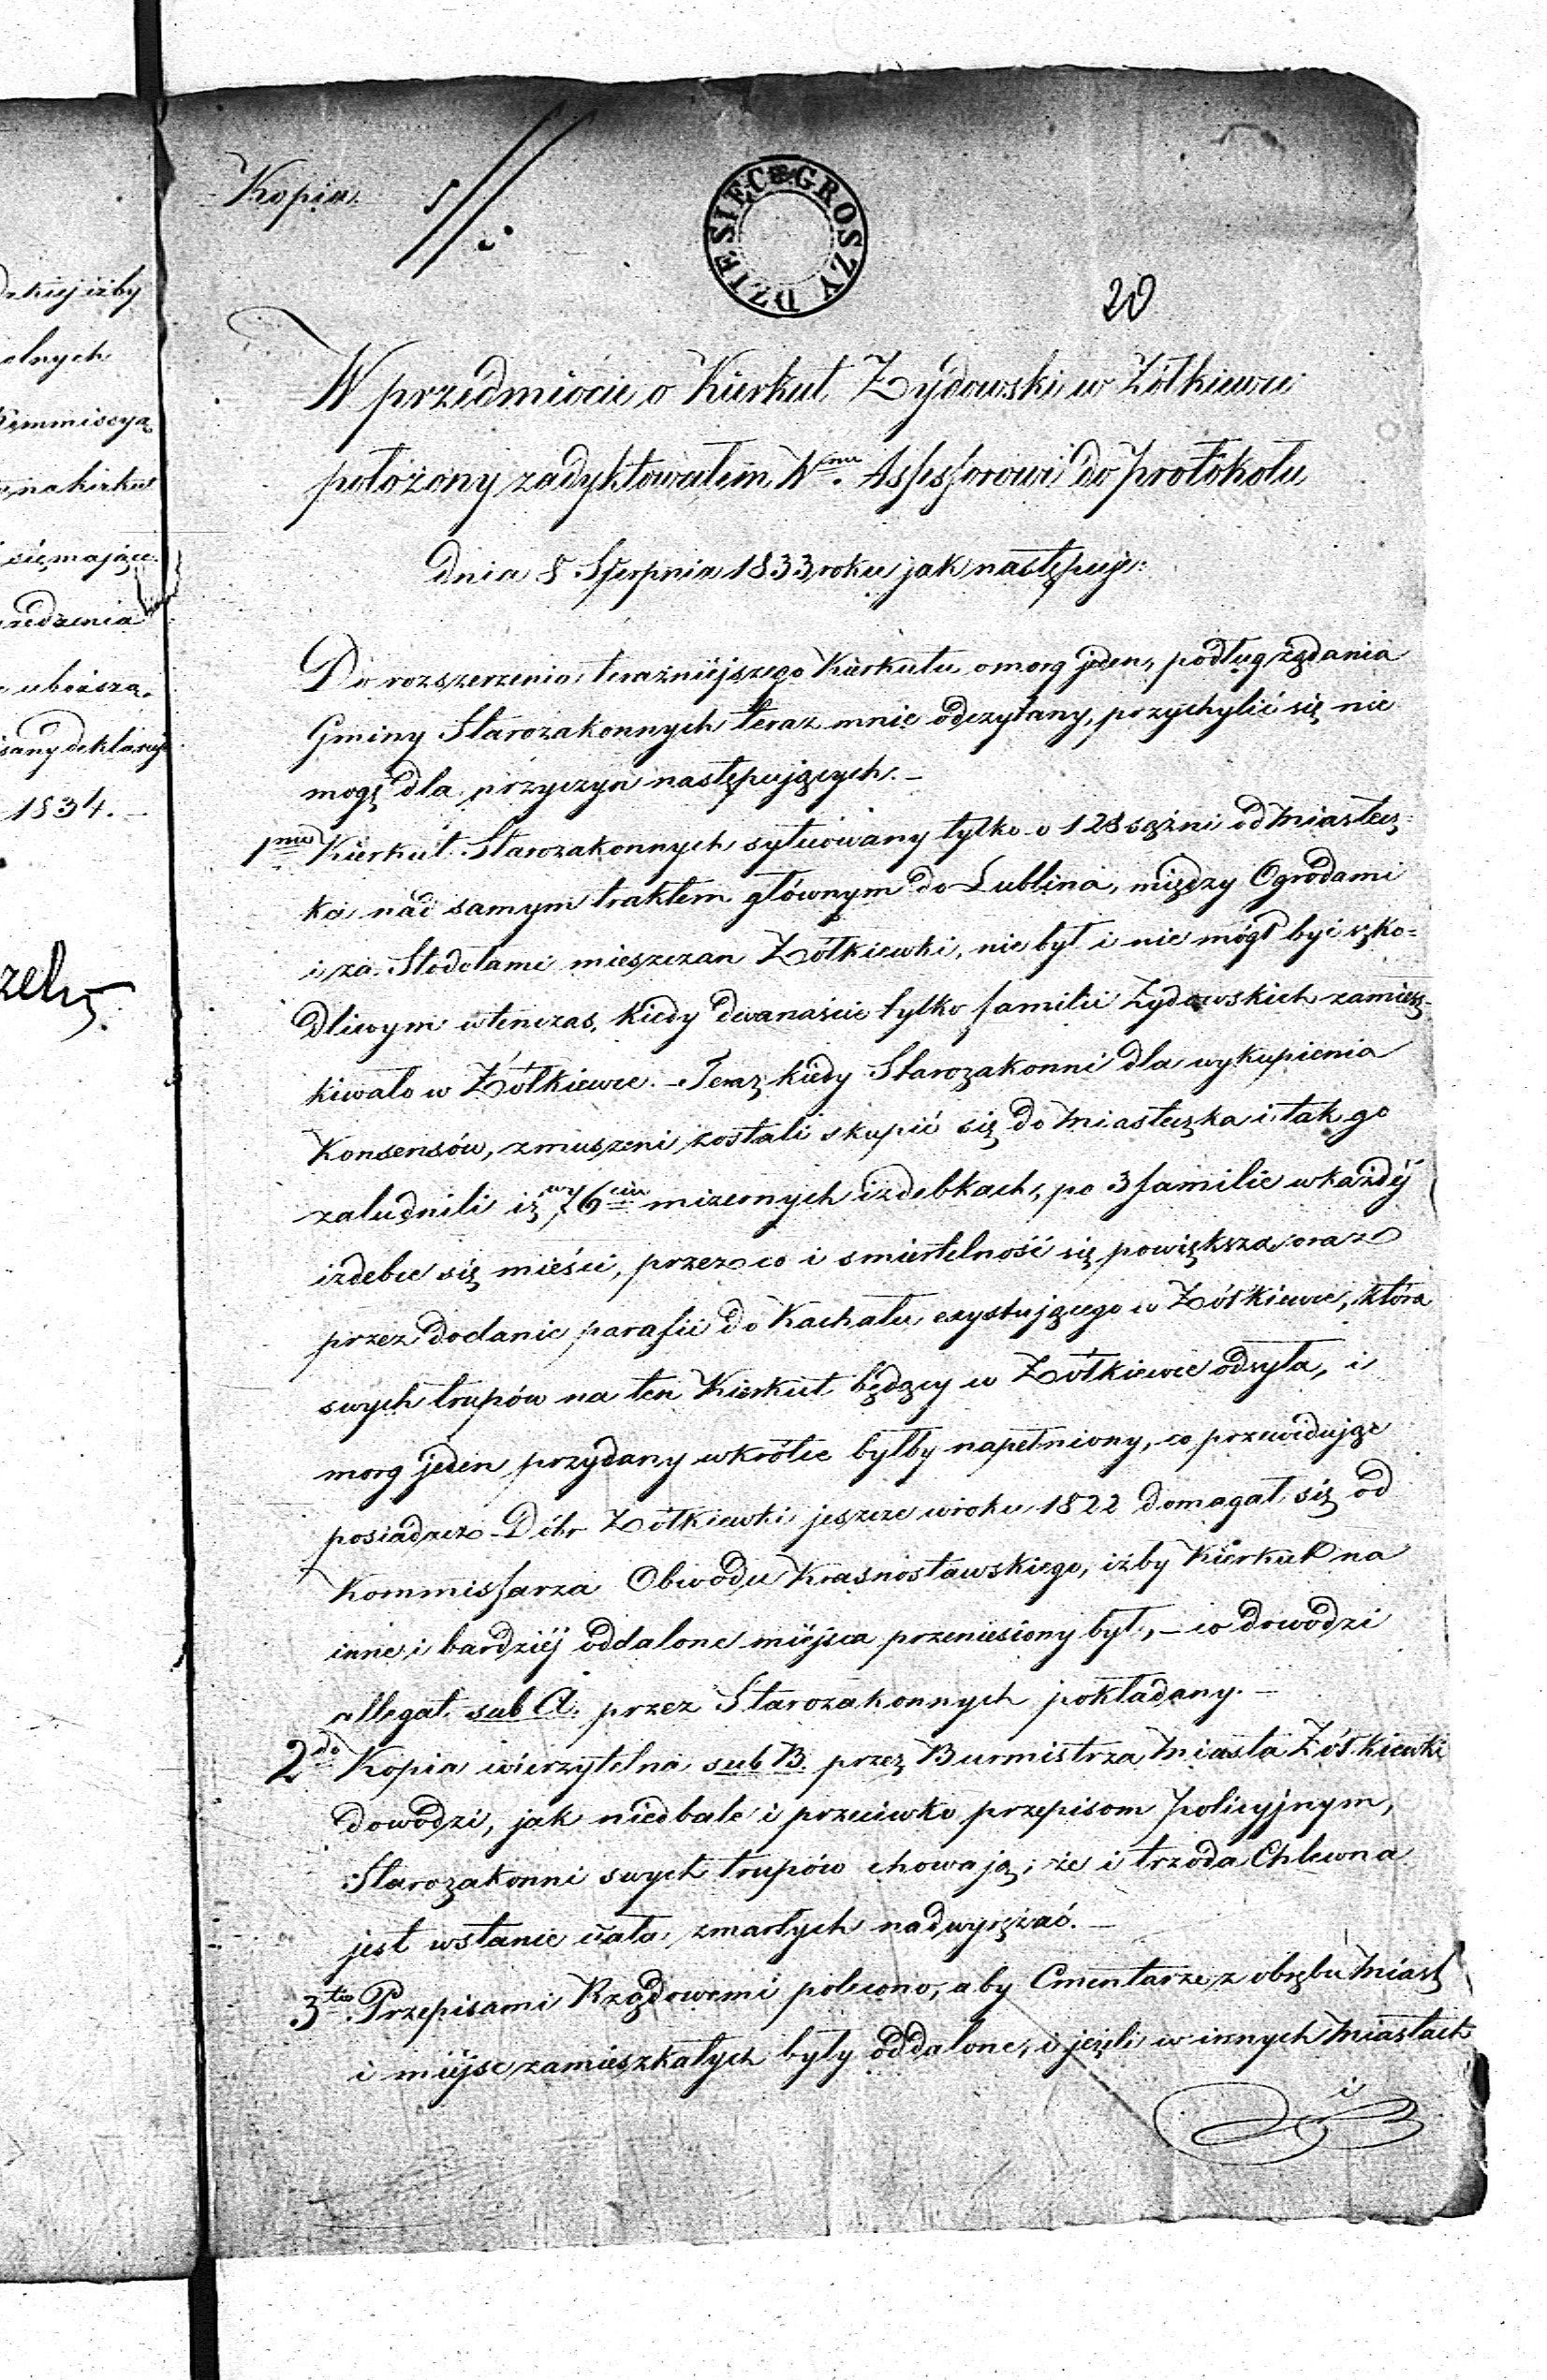 dzkiej iżby
alnych
Kommissyą
na kirkut
się mające
redzenia
uboższa
isany deklaruje
1834. –
Kopia.
DZIESIĘĆ GROSZY
20
W przedmiocie o Kierkut Żydowski w Żółkiewce
położony zadyktowałem W.mu Assessorowi do Protokołu
dnia 8 Sierpnia 1833 roku jak następuje:
Do rozszerzenia teraźniejszego Kierkutu o morg jeden, podług żądania
Gminy Starozakonnych teraz mnie odczytany, przychylić się nie
mogę dla przyczyn następujących. –
1mo Kierkut Starozakonnych sytuowany tylko o 128 sążni od Miastecz=
ka nad samym traktem głównym do Lublina, między Ogrodami
i za Stodołami mieszczan Żółkiewki, nie był i nie mógł być szko=
dliwym wtenczas, kiedy dwanaście tylko familii Żydowskich zamiesz=
kiwało w Żółkiewce. – Teraz kiedy Starozakonni dla wykupienia
Konsensów, zmuszeni zostali skupić się do Miasteczka i tak go
zaludnili iż w 76ciu mizernych izdebkach, po 3 familie w każdéj
izdebce się mieści, przez co i smiertelność się powiększa, oraz
przez dodanie parafii do Kachału exystującego w Żółkiewce, która
swych trupów na ten Kierkut będący w Żółkiewce odsyła, i
morg jeden przydany wkrótce byłby napełniony, co przewidując
posiadacz Dóbr Żółkiewki jeszcze w roku 1822 domagał się od
Kommissarza Obwodu Krasnostawskiego, iżby Kierkut na
inne i bardziéj oddalone miéjsca przeniesiony był, – co dowodzi
allegat sub A. przez Starozakonnych pokładany. –
2do Kopia wierzytelna sub B. przez Burmistrza Miasta Żółkiewki
dowodzi, jak niedbale i przeciwko przepisom Policyjnym,
Starozakonni swych trupów chowają, że i trzoda Chlewna
jest wstanie ciała zmarłych nadwyrężać. –
3tio Przepisami Rządowemi polecono, aby Cmentarze z obrębu Miast
i miéjsc zamieszkałych były oddalone, i jeżeli w innych Miastach
i